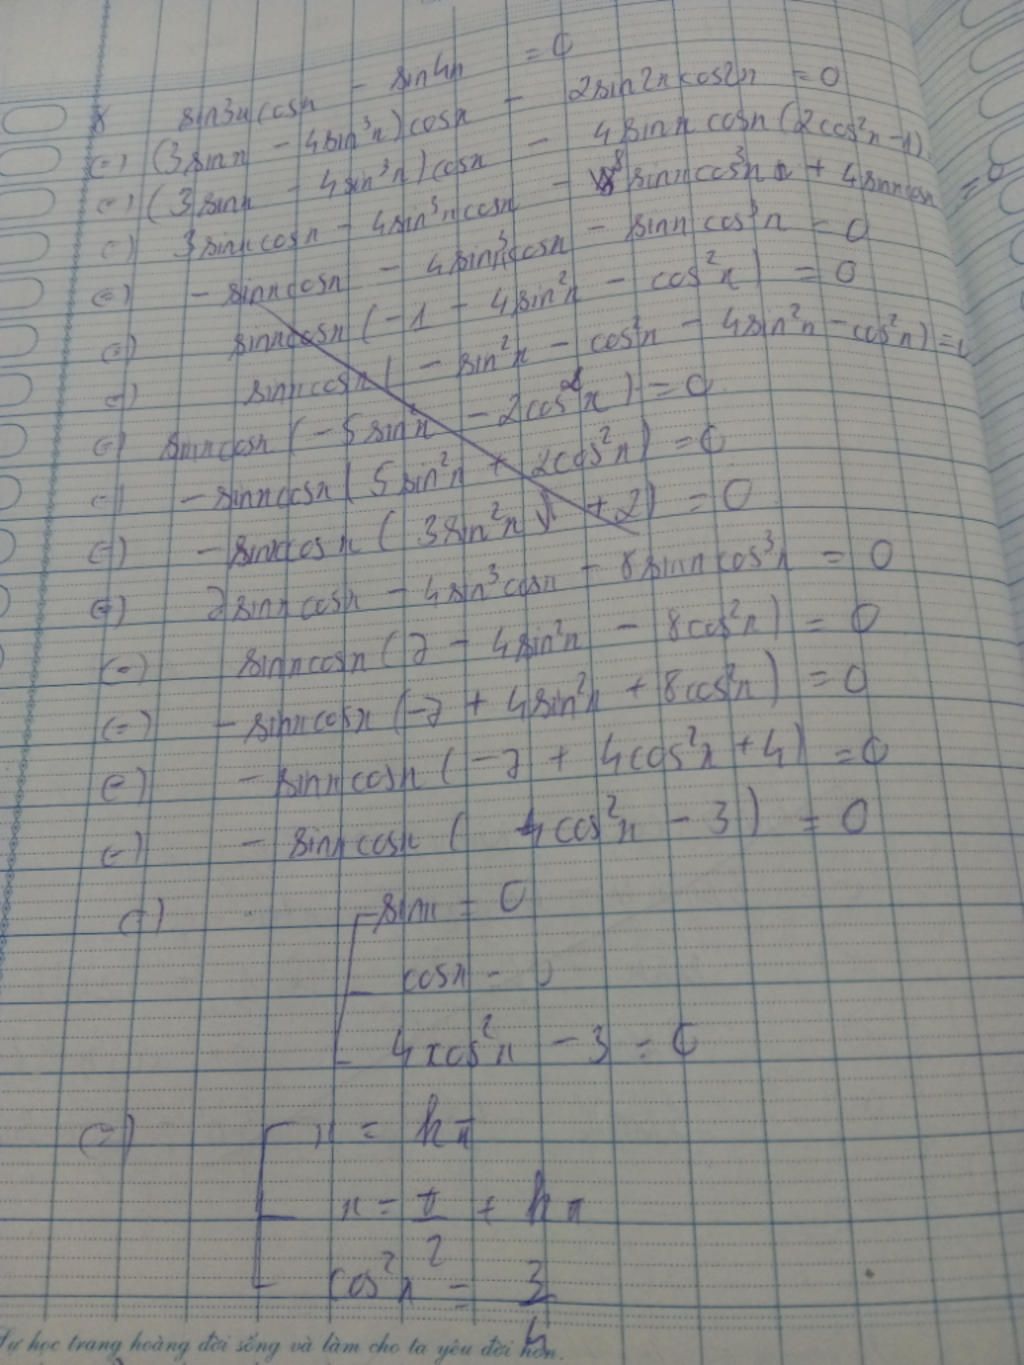 8 sin3x cosx - sin4x = 0
(=) (3sinx - 4sin³x) cosx - 2sin2x cos2x = 0
(=) (3sinx - 4sin³x) cosx - 4sinx cosx (2cos²x - 1)
(=) 3sinxcosx - 4sin³xcosx - 8sinxcos³x + 4sinxcosx = 0
(=) - sinxcosx - 4sin³xcosx - sinx cos³x = 0
(=) sinxcosx (-1 - 4sin²x - cos²x) = 0
(=) sinxcosx (- sin²x - cos²x - 4sin²x - cos²x) = 0
(=) sinxcosx (-5sin²x - 2cos²x) = 0
(=) - sinxcosx (5sin²x + 2cos²x) = 0
(=) - sinxcosx (3sin²x + 2) = 0
(=) 7sinxcosx - 4sin³cosx - 8sinxcos³x = 0
(=) sinxcosx (7 - 4sin²x - 8cos²x) = 0
(=) - sinxcosx (-7 + 4sin²x + 8cos²x) = 0
(=) - sinxcosx (-7 + 4cos²x + 4) = 0
(=) - sinxcosx (4cos²x - 3) = 0
(=) sinx = 0
cosx = 0
4cos²x - 3 = 0
(=) x = kπ
x = π/2 + kπ
cos²x = 3/4
Tự học trang hoàng đời sống và làm cho ta yêu đời hơn.